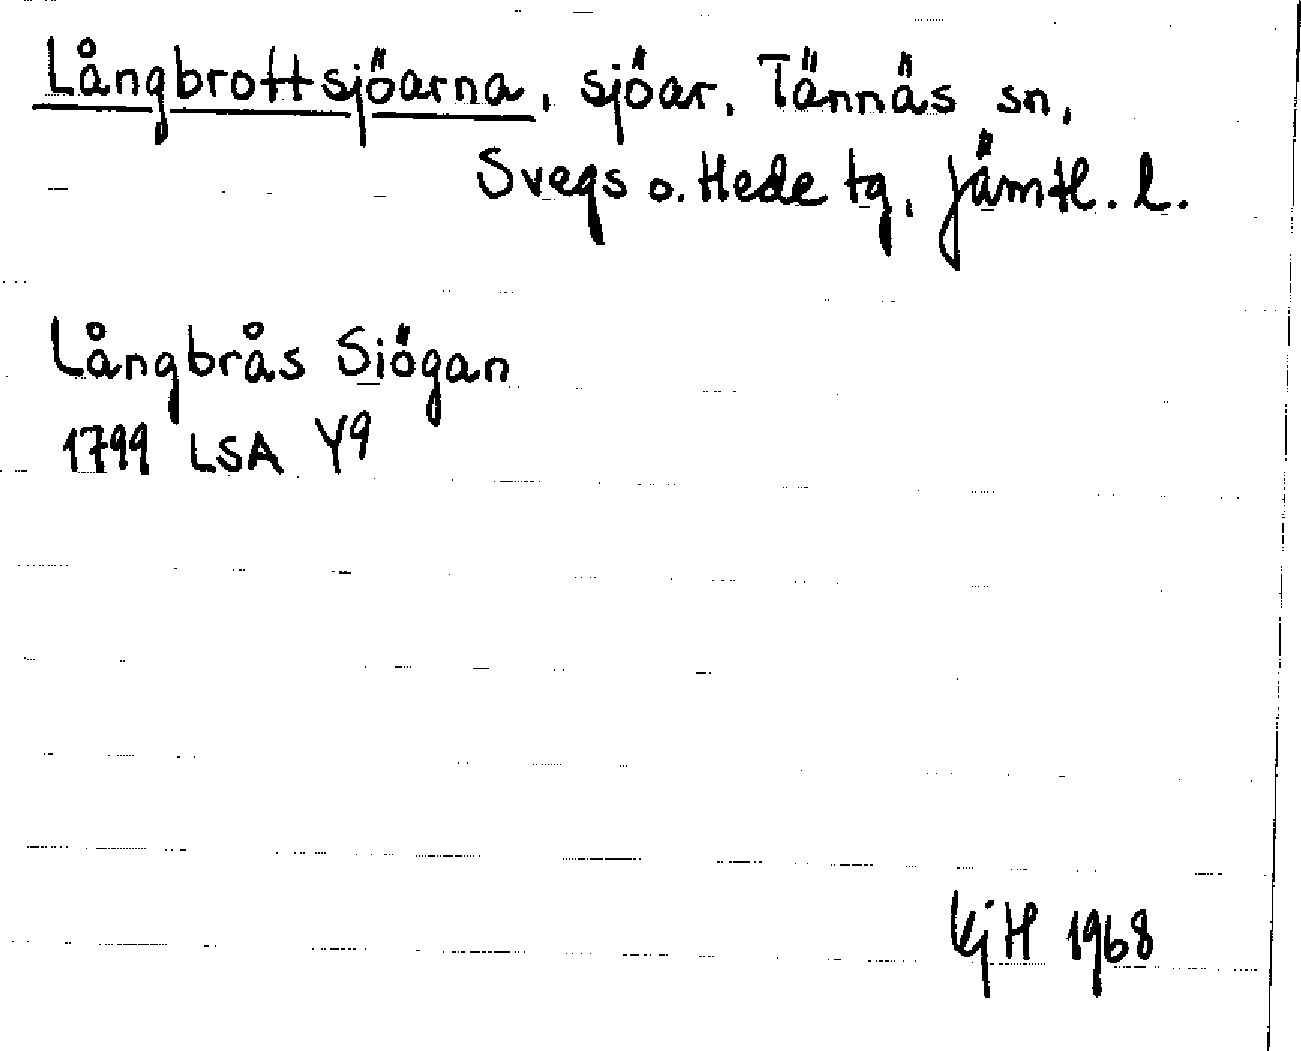 Långbrottsjöarna, sjöar, Tännäs sn,
Svegs o. Hede tg, Jämtl. l.
Långbrås Siögan
1799 LSA Y9
KjH 1968